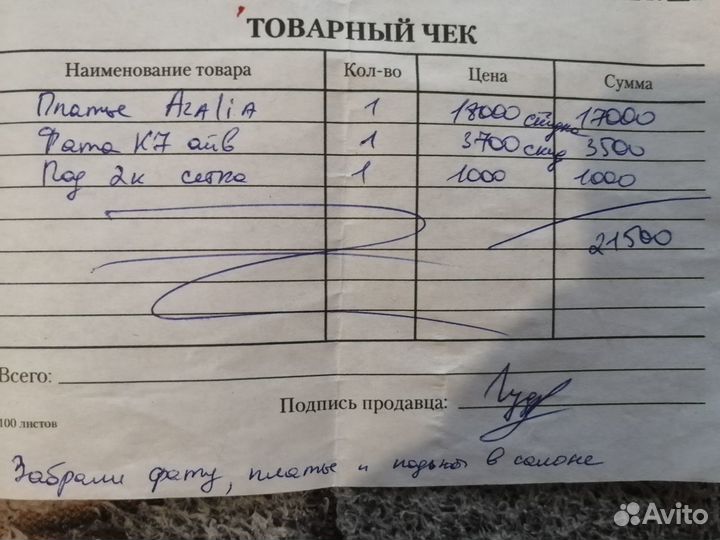 ТОВАРНЫЙ ЧЕК
Наименование товара Кол-во Цена Сумма
Платье AzAliA 1 18000 скидка 17000
Фата К7 айв 1 3700 скид 3500
Под 2к сетка 1 1000 1000
21500
Всего:
Подпись продавца:
100 листов
Забрали фату, платье и подъюб в салоне
Avito